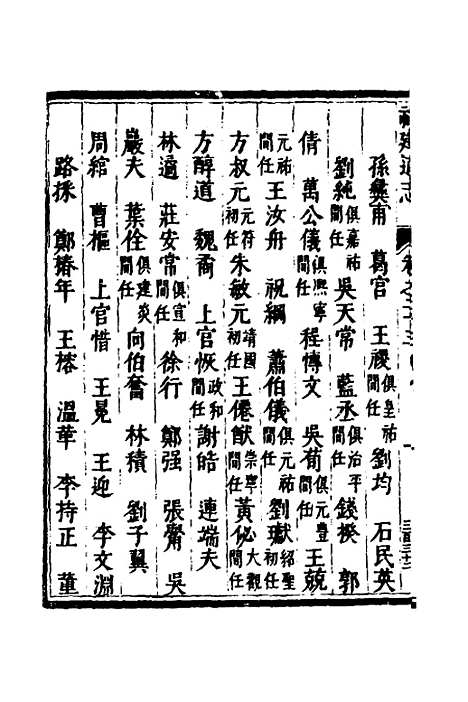 孫奠甫 葛官 王禝俱皇祐間任 劉均 石民英
劉純俱嘉祐間任 吳天常 藍丞俱治平間任 錢揆 郭
倩 萬公儀俱熙寧間任 程博文 吳荀俱元豐間任 王兢
元祐間任 王汝舟 祝綱 蕭伯儀俱元祐間任 劉獻紹聖初任
方叔元元符初任 朱敏元靖國初任 王僊猷崇寧間任 黃伀大觀間任
方醇道 魏矞 上官恢政和間任 謝皓 連端夫
林遹 莊安常俱宣和間任 徐行 鄭强 張觷 吳
巖夫 葉佺俱建炎間任 向伯奮 林積 劉子翼
周綰 曹樞 上官愔 王晃 王迎 李文淵
路採 鄭椿年 王榕 溫革 李持正 葉
福建通志